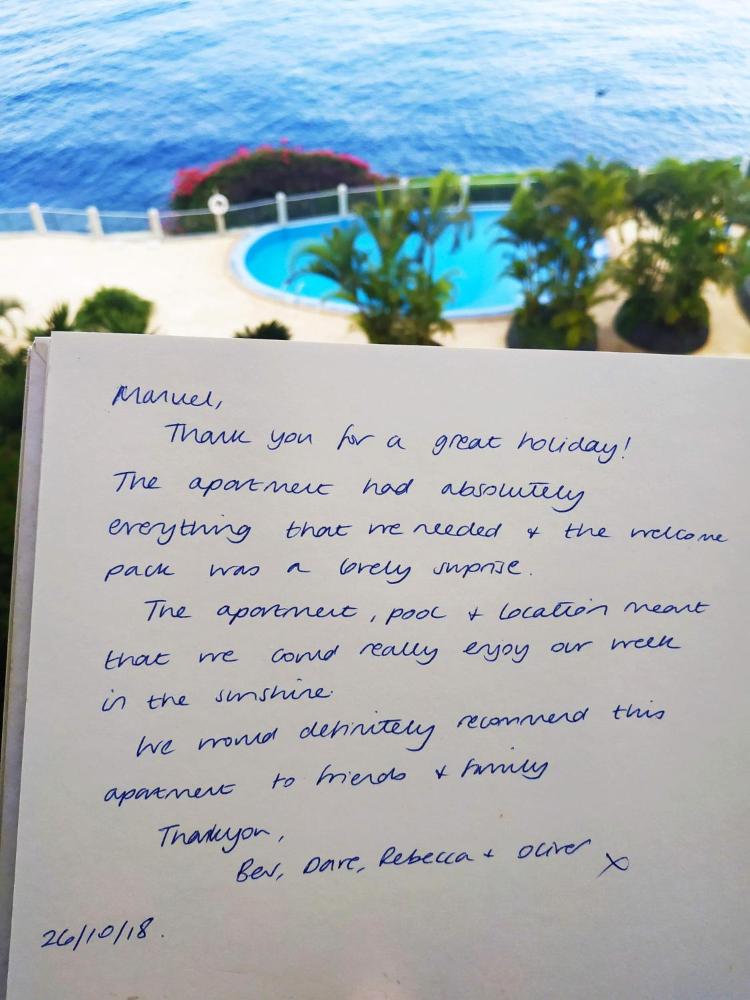 Manuel,
Thank you for a great holiday!
The apartment had absolutely
everything that we needed + the welcome
pack was a lovely suprise.
The apartment, pool + location meant
that we could really enjoy our week
in the sunshine.
We would definitely recommend this
apartment to friends + family
Thankyou,
Bev, Dave, Rebecca + Oliver x
26/10/18.